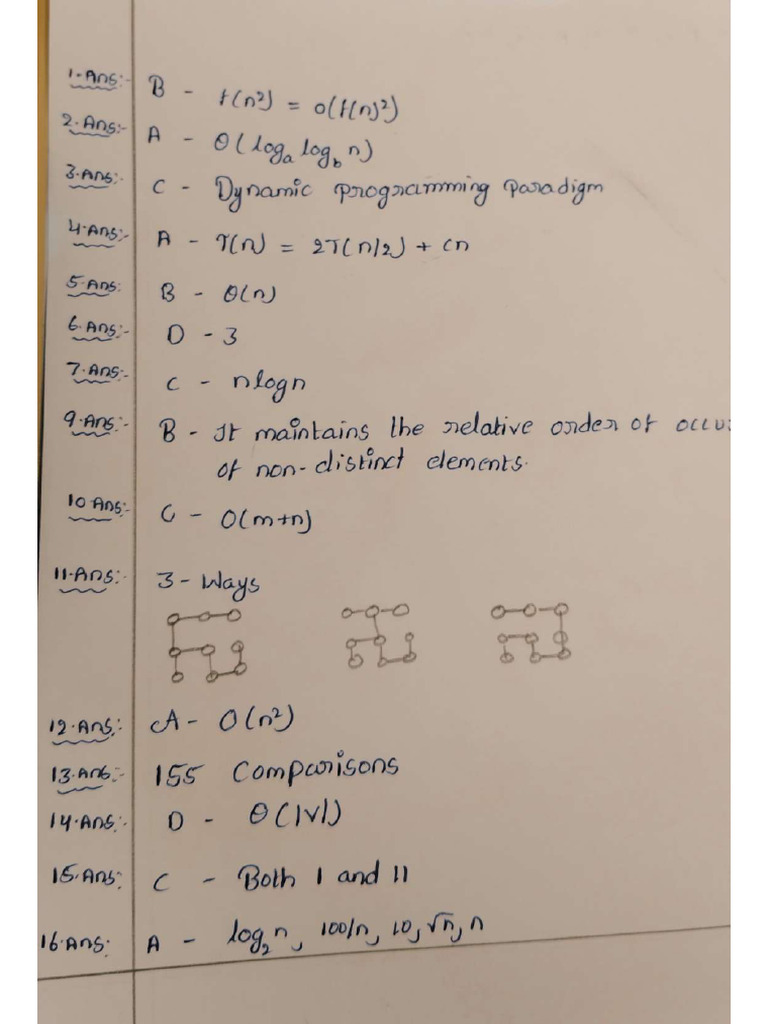 1·Ans:- B - f(n²) = o(f(n)²)
2·Ans:- A - θ(logₐ log_b n)
3·Ans:- C - Dynamic programming Paradigm
4·Ans:- A - T(n) = 2T(n/2) + cn
5·Ans: B - θ(n)
6·Ans:- D - 3
7·Ans:- C - nlogn
9·Ans:- B - It maintains the relative order of occu
of non-distinct elements.
10·Ans:- C - O(m+n)
11·Ans:- 3 - Ways
12·Ans:- A - O(n²)
13·Ans:- 155 Comparisons
14·Ans:- D - θ(|V|)
15·Ans: C - Both I and II
16·Ans: A - log₂n, 100/n, 10, √n, n